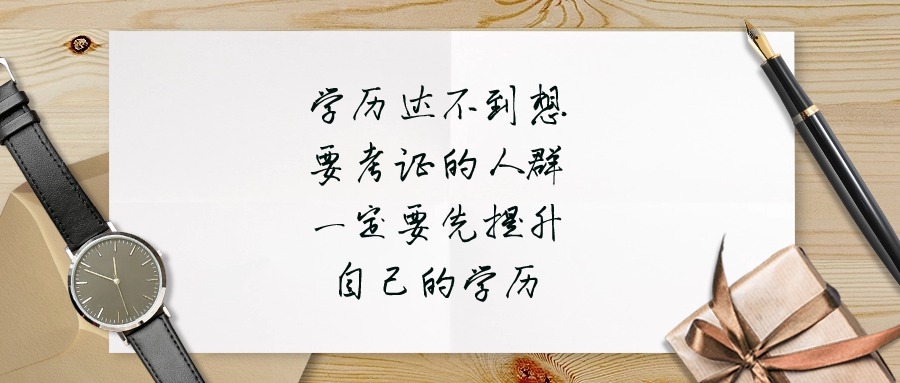 学历达不到想
要考证的人群
一定要先提升
自己的学历